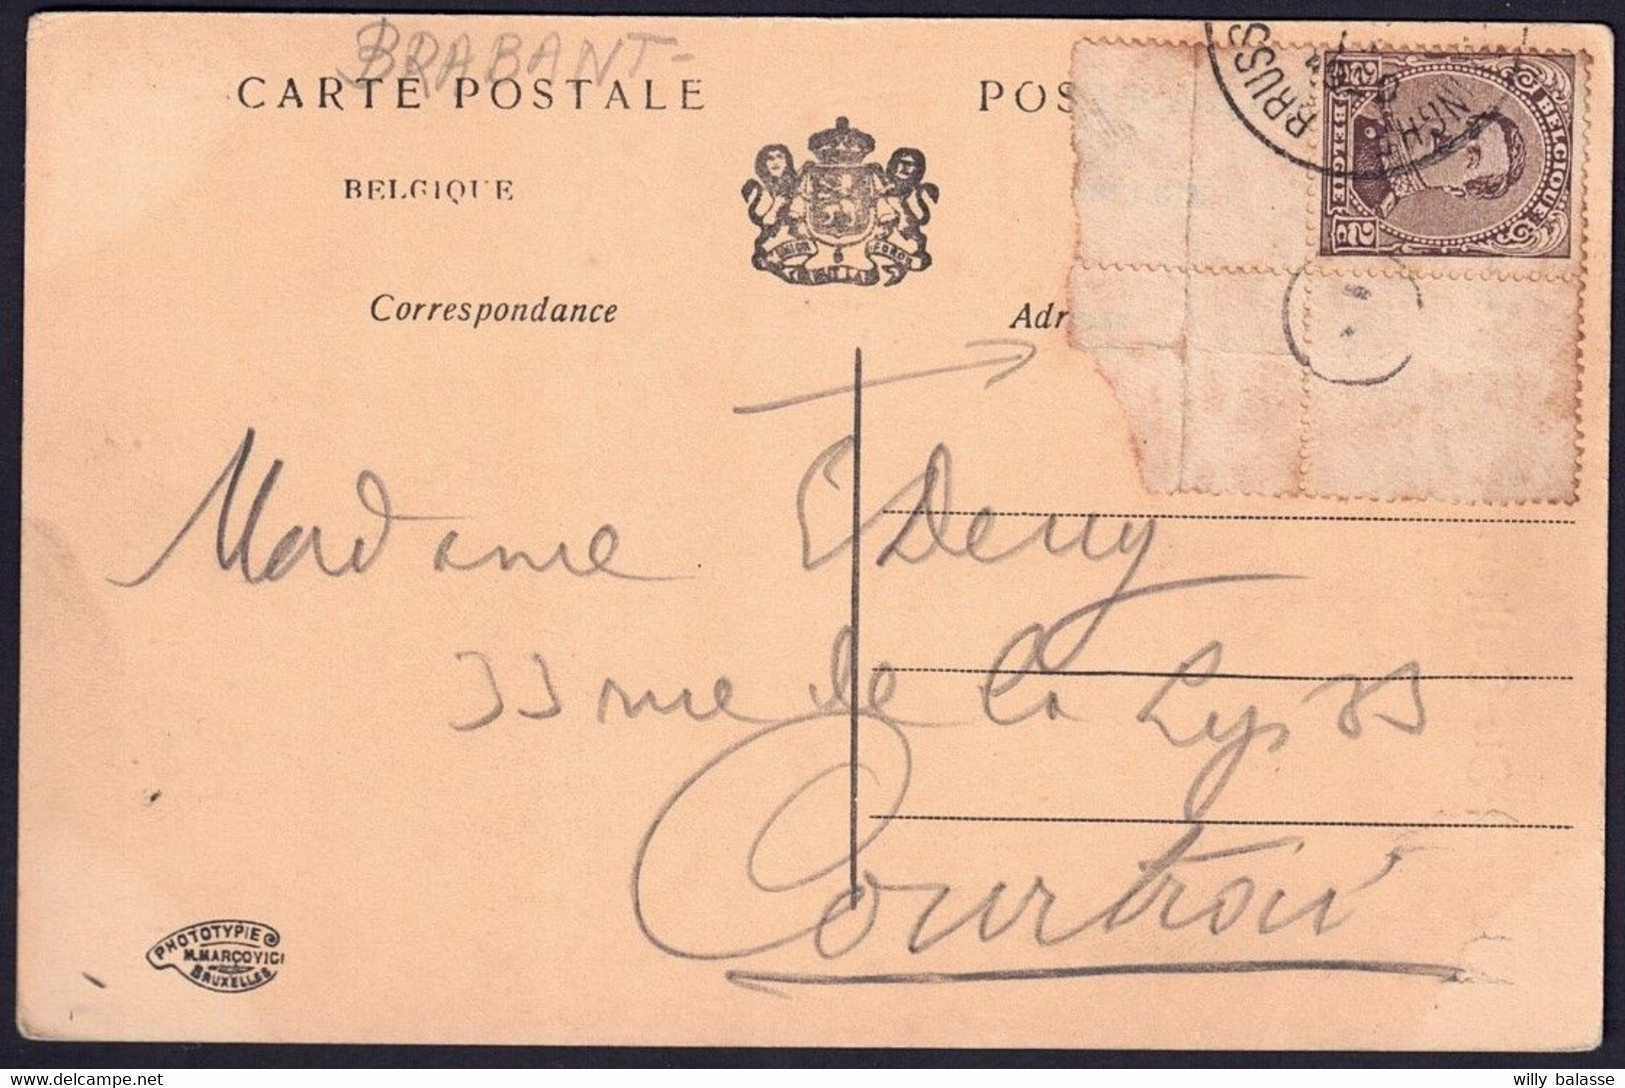 BRABANT-
CARTE POSTALE
POS
BELGIQUE
Correspondance
Adr
BRUSS
BELGIQUE
BELGIE
2c
2c
Madame Deny
33 rue de la Lys 33
Courtrai
PHOTOTYPIE
M.MARCOVICI
BRUXELLES
willy balasse